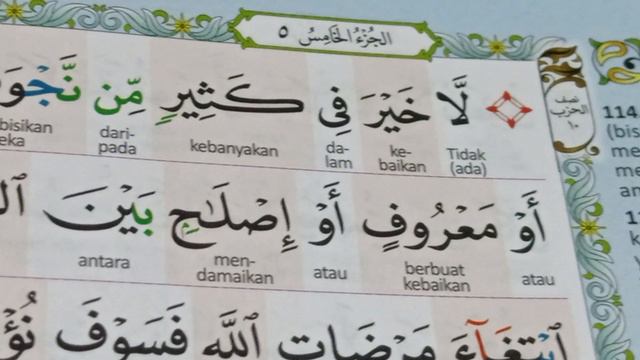 الجُزْءُ الخَامِسُ ٥
نصف
الحزب
١٠
لَّا خَيْرَ فِى كَثِيرٍ مِّن
Tidak (ada) ke-baikan da-lam kebanyakan dari-pada bisikan eka
أَوْ مَعْرُوفٍ أَوْ إِصْلَٰحٍ بَيْنَ
atau berbuat kebaikan atau men-damaikan antara
ٱبْتِغَآءَ مَرْضَاتِ ٱللَّهِ فَسَوْفَ
114.
(bis
me
me
an